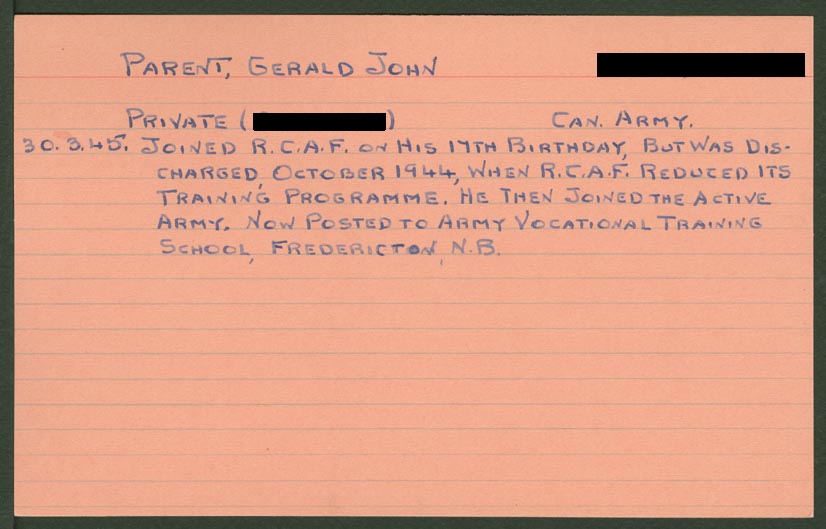 PARENT, GERALD JOHN
PRIVATE ( ) CAN. ARMY.
30.3.45. JOINED R.C.A.F. ON HIS 17TH BIRTHDAY, BUT WAS DIS-
CHARGED, OCTOBER 1944, WHEN R.C.A.F. REDUCED ITS
TRAINING PROGRAMME. HE THEN JOINED THE ACTIVE
ARMY. NOW POSTED TO ARMY VOCATIONAL TRAINING
SCHOOL, FREDERICTON, N.B.